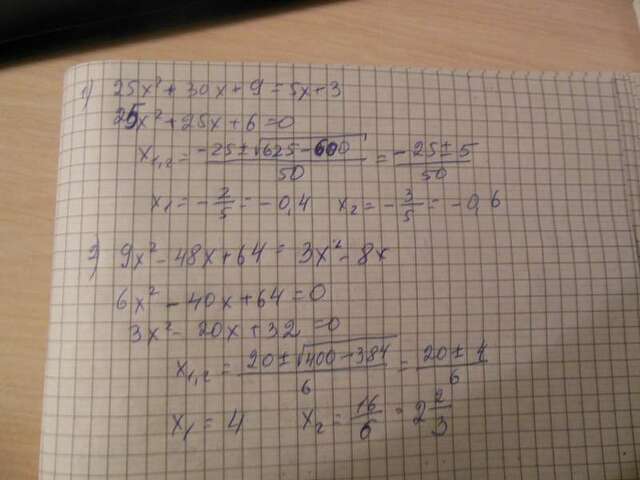 1) 25x² + 30x + 9 = 5x + 3
25x² + 25x + 6 = 0
x₁,₂ = (-25 ± √(625 - 600))/50 = (-25 ± 5)/50
x₁ = -2/5 = -0,4 x₂ = -3/5 = -0,6
2) 9x² - 48x + 64 = 3x² - 8x
6x² - 40x + 64 = 0
3x² - 20x + 32 = 0
x₁,₂ = (20 ± √(400 - 384))/6 = (20 ± 4)/6
x₁ = 4 x₂ = 16/6 = 2 2/3